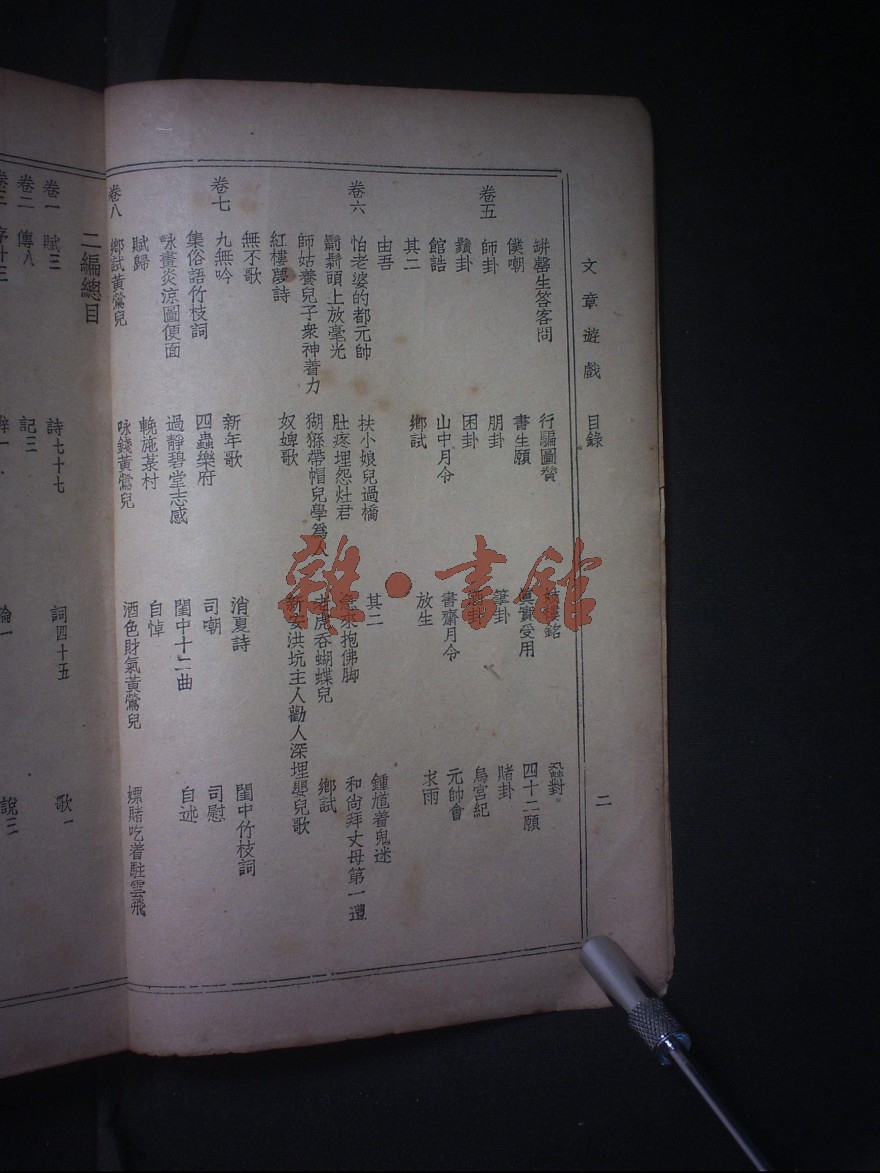 文章遊戲 目錄 二
罄生答客問 行騙圖贊 對
僕嘲 書生願 真實受用 四十二願
卷五 師卦 朋卦 筆卦 賭卦
鬚卦 困卦 酒卦 烏宮紀
館誥 山中月令 書齋月令 元帥會
其二 鄉試 放生 求雨
由吾 扶小娘兒過橋 其二 鍾馗着鬼迷
卷六 怕老婆的都元帥 肚疼埋怨灶君 急來抱佛脚 和尚拜丈母第一遭
鬍鬚頭上放毫光 猢猻帶帽兒學爲人 老虎吞蝴蝶兒 鄉試
師姑養兒子衆神着力
紅樓夢詩 奴婢歌 新安洪坑主人勸人深埋嬰兒歌
無不歌
卷七 九無吟 新年歌 消夏詩 閨中竹枝詞
集俗語竹枝詞 四蟲樂府 司嘲 司慰
咏畫炎涼圖便面 過靜碧堂志感 閨中十二曲 自述
賦歸 輓施菉村 自悼
卷八 鄉試黃鶯兒 咏錢黃鶯兒 酒色財氣黃鶯兒 嫖賭吃着駐雲飛
二編總目
卷一 賦三 詩七十七 詞四十五 歌一
卷二 傳八 記三
卷三 序十三 辯一 論一 說三
雜·書館